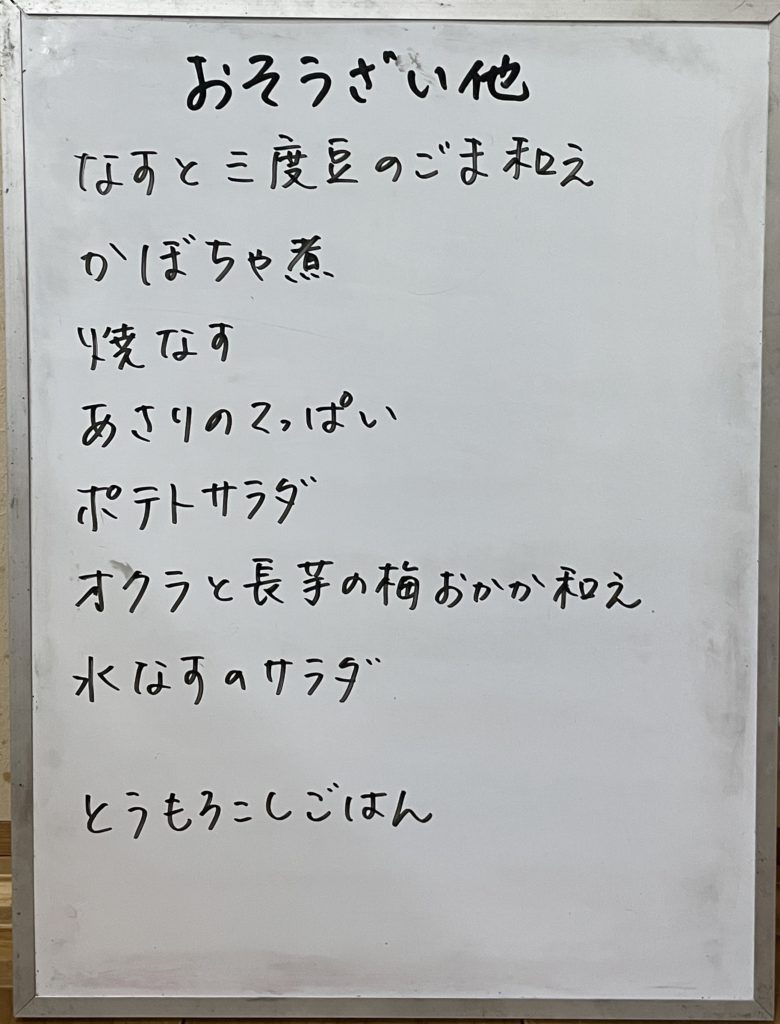 おそうざい他
なすと三度豆のごま和え
かぼちゃ煮
焼なす
あさりのてっぱい
ポテトサラダ
オクラと長芋の梅おかか和え
水なすのサラダ
とうもろこしごはん